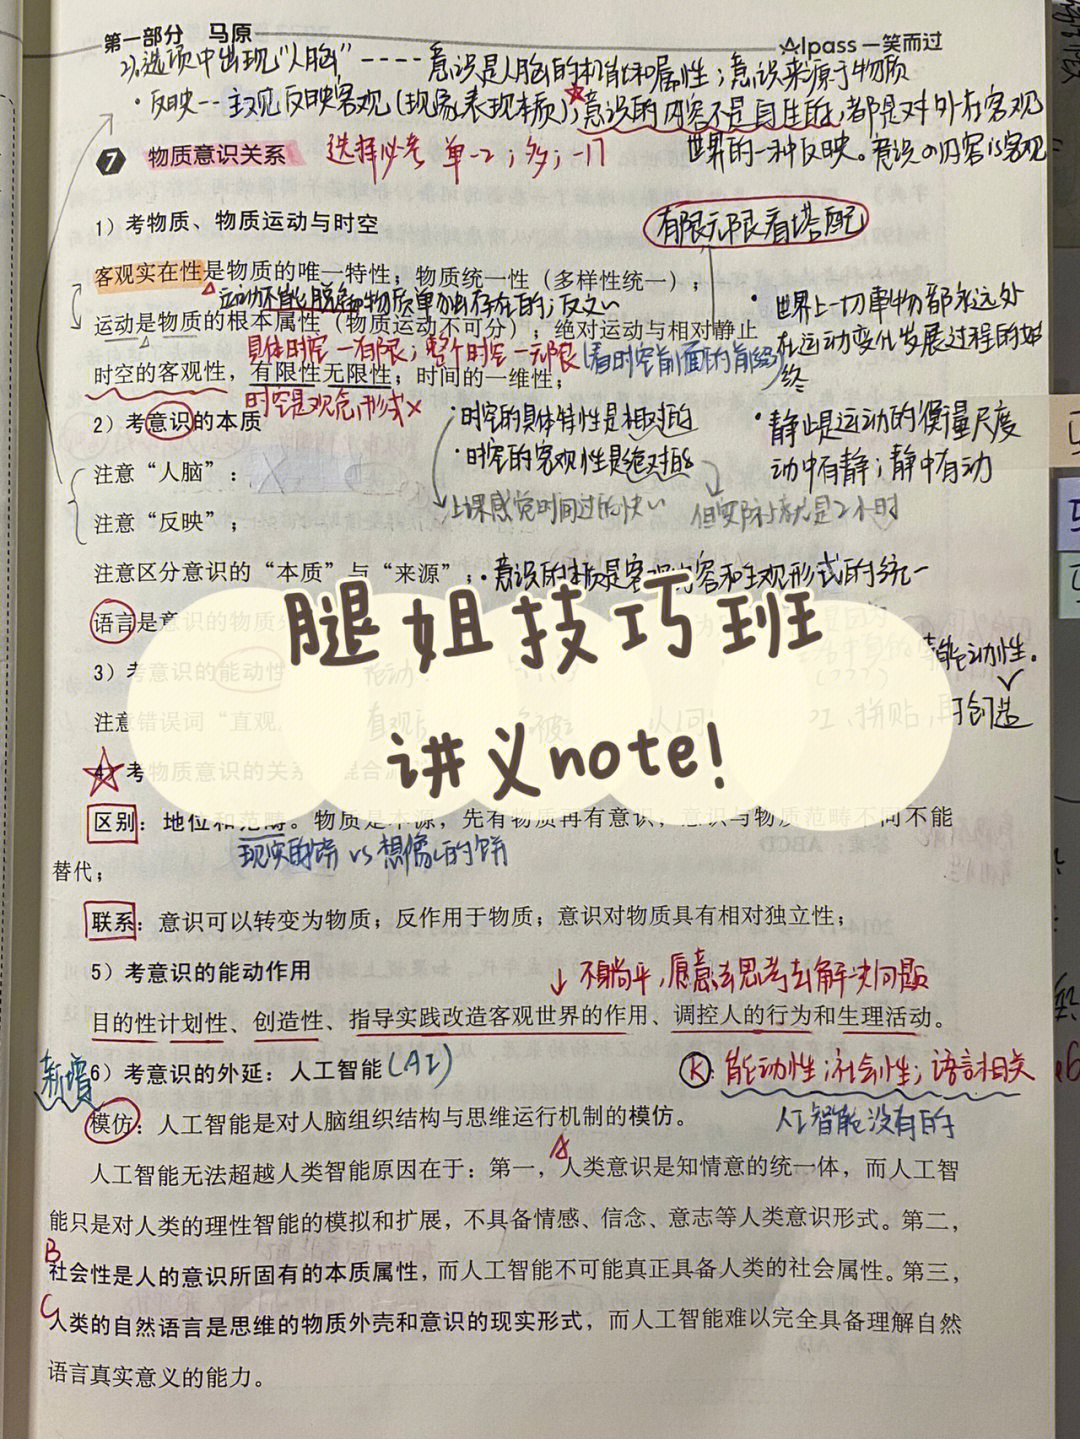 第一部分 马原
Aipass 一笑而过
2).选项中出现“人脑”----意识是人脑的机能和属性；意识来源于物质
·反映--主观反映客观（现象表现本质）；意识的内容不是自生的，都是对外在客观
世界的一种反映。意识的内容is客观
7 物质意识关系 选择必考 单-2；多；-17
1）考物质、物质运动与时空
有限无限看搭配
客观实在性是物质的唯一特性；物质统一性（多样性统一）；
运动不能脱离物质单独存在的；反之~
运动是物质的根本属性（物质运动不可分），绝对运动与相对静止
具体时空一有限；整个时空一无限（看时空前面的前缀）
时空的客观性，有限性无限性；时间的一维性；
时空是观念形式×
·世界上一切事物都永远处
在运动变化发展过程的始
终
2）考意识的本质
·时空的具体特性是相对的
·时空的客观性是绝对的
·静止是运动的衡量尺度
动中有静；静中有动
注意“人脑”：
上课感觉时间过的快~
但实际就是2小时
注意“反映”；
注意区分意识的“本质”与“来源”；·意识的本质是客观内容和主观形式的统一
语言是意识的物质外
腿姐技巧班
3）考意识的能动性
能动性.
创造
注意错误词“直观
讲义note!
4）考物质意识的关系
区别：地位和范畴。物质是本源，先有物质再有意识；意识与物质范畴不同不能
现实的饼 vs 想像的饼
替代；
联系：意识可以转变为物质；反作用于物质；意识对物质具有相对独立性；
5）考意识的能动作用
↓不躺平，愿意去思考去解决问题
目的性计划性、创造性、指导实践改造客观世界的作用、调控人的行为和生理活动。
新增
6）考意识的外延：人工智能（AI）
K：能动性；社会性；语言相关
人工智能没有的
模仿：人工智能是对人脑组织结构与思维运行机制的模仿。
A
人工智能无法超越人类智能原因在于：第一，人类意识是知情意的统一体，而人工智
能只是对人类的理性智能的模拟和扩展，不具备情感、信念、意志等人类意识形式。第二，
B
社会性是人的意识所固有的本质属性，而人工智能不可能真正具备人类的社会属性。第三，
C
人类的自然语言是思维的物质外壳和意识的现实形式，而人工智能难以完全具备理解自然
语言真实意义的能力。